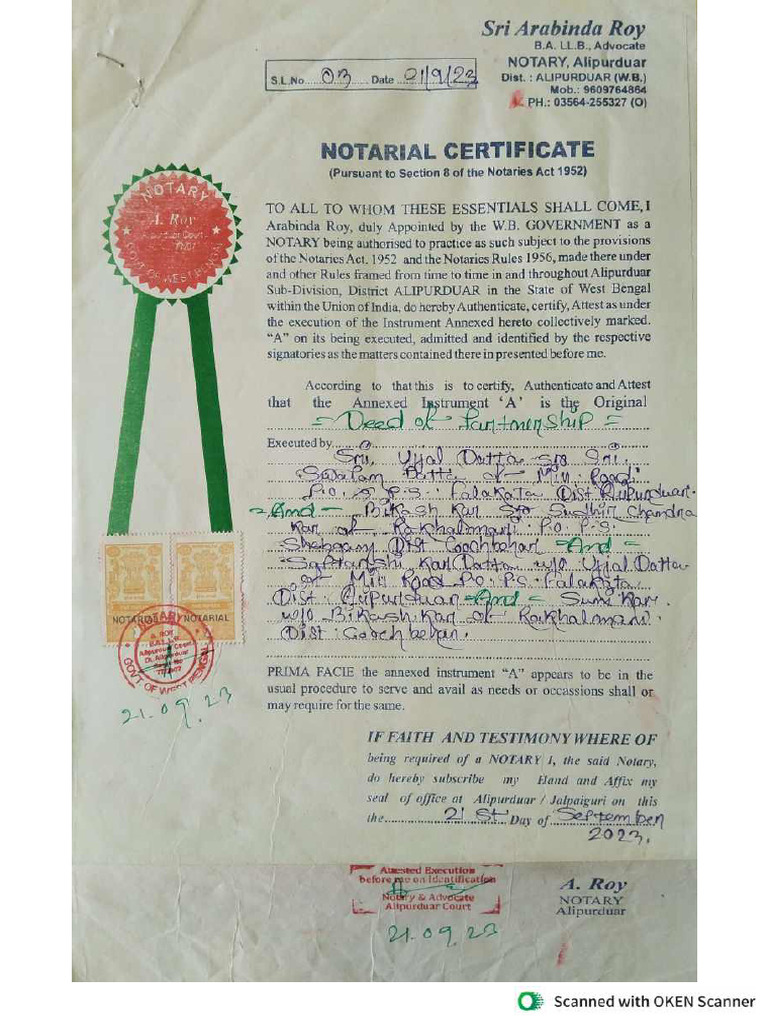 Sri Arabinda Roy
B.A. LL.B., Advocate
NOTARY, Alipurduar
Dist. : ALIPURDUAR (W.B.)
Mob.: 9609764864
PH.: 03564-255327 (O)
S.L.No 03 Date 21/9/23
NOTARIAL CERTIFICATE
(Pursuant to Section 8 of the Notaries Act 1952)
NOTARY
A. Roy
Alipurduar Court
GOVT. OF WEST BENGAL
TO ALL TO WHOM THESE ESSENTIALS SHALL COME, I
Arabinda Roy, duly Appointed by the W.B. GOVERNMENT as a
NOTARY being authorised to practice as such subject to the provisions
of the Notaries Act. 1952 and the Notaries Rules 1956, made there under
and other Rules framed from time to time in and throughout Alipurduar
Sub-Division, District ALIPURDUAR in the State of West Bengal
within the Union of India, do hereby Authenticate, certify, Attest as under
the execution of the Instrument Annexed hereto collectively marked.
“A” on its being executed, admitted and identified by the respective
signatories as the matters contained there in presented before me.
According to that this is to certify, Authenticate and Attest
that the Annexed Instrument ‘A’ is the Original
= Deed of Partnership =
Executed by Sri Ujjal Datta S/o Sri.
Datta of Mill Road
P.O. & P.S. Falakata Dist Alipurduar.
= And = Bikash Kar S/o Sudhir Chandra
Kar of Rakhalmari P.O. P.S.
Dist Coochbehar = And =
Saptarshi Kar Datta w/o Ujjal Datta
of Mill Road P.O. P.S. Falakata
Dist. Alipurduar = And = Sumi Kar
w/o Bikash Kar of Rakhalmari
Dist: Coochbehar.
NOTARIAL
NOTARIAL
NOTARY
A. ROY
Alipurduar Court
GOVT. OF WEST BENGAL
21.09.23
PRIMA FACIE the annexed instrument “A” appears to be in the
usual procedure to serve and avail as needs or occassions shall or
may require for the same.
IF FAITH AND TESTIMONY WHERE OF
being required of a NOTARY I, the said Notary,
do hereby subscribe my Hand and Affix my
seal of office at Alipurduar / Jalpaiguri on this
the 21st Day of September
2023.
Attested Execution
before me on Identification
Notary & Advocate
Alipurduar Court
21.09.23
A. Roy
NOTARY
Alipurduar
Scanned with OKEN Scanner